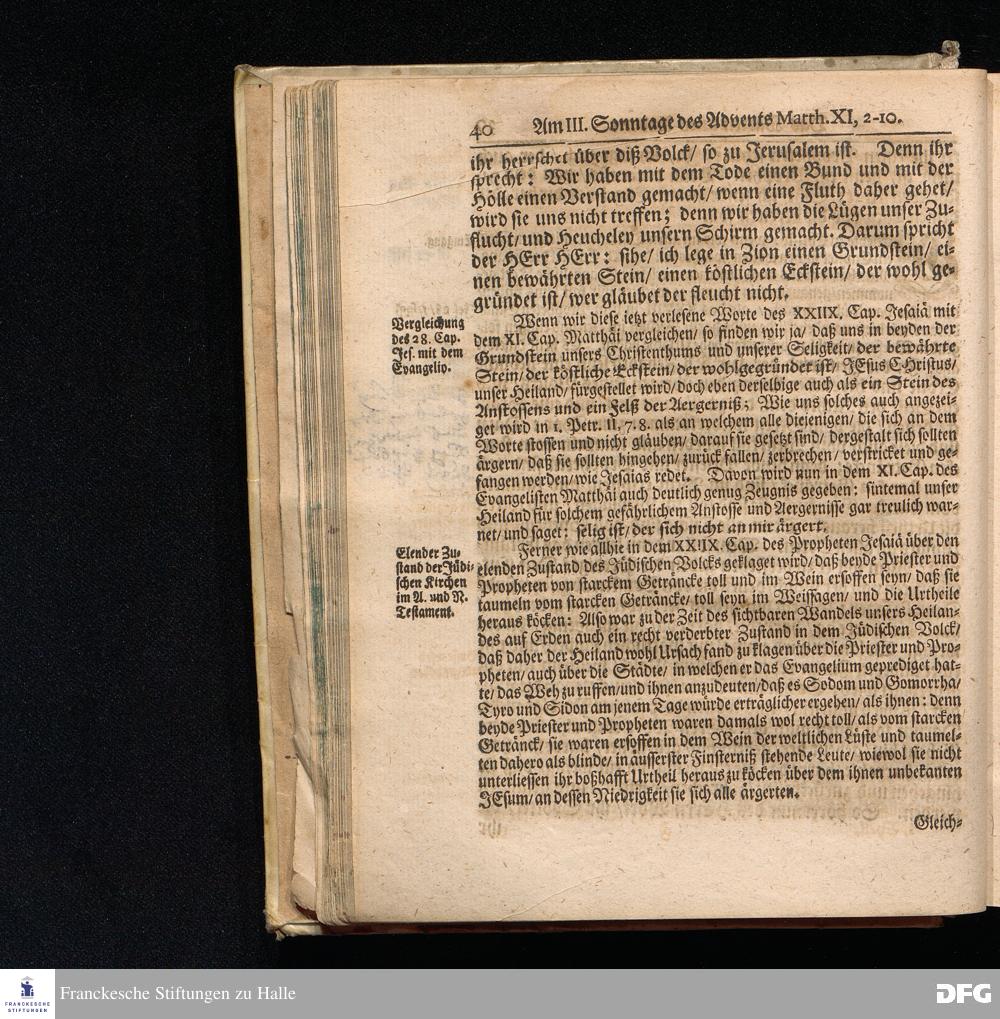 40 Am III. Sonntage des Advents Matth. XI, 2-10.
ihr herrschet über diß Volck/ so zu Jerusalem ist. Denn ihr
sprecht: Wir haben mit dem Tode einen Bund und mit der
Hölle einen Verstand gemacht/ wenn eine Fluth daher gehet/
wird sie uns nicht treffen; denn wir haben die Lügen unser Zu-
flucht/ und Heucheley unsern Schirm gemacht. Darum spricht
der HErr HErr: sihe/ ich lege in Zion einen Grundstein/ ei-
nen bewährten Stein/ einen köstlichen Eckstein/ der wohl ge-
gründet ist/ wer gläubet der fleucht nicht.
Vergleichung
des 28. Cap.
Jes. mit dem
Evangelio.
Wenn wir diese ietzt verlesene Worte des XXIIX. Cap. Jesaiä mit
dem XI. Cap. Matthäi vergleichen/ so finden wir ja/ daß uns in beyden der
Grundstein unsers Christenthums und unserer Seligkeit/ der bewährte
Stein/ der köstliche Eckstein/ der wohlgegründet ist/ JEsus CHristus/
unser Heiland/ fürgestellet wird/ doch eben derselbige auch als ein Stein des
Anstossens und ein Felß der Aergerniß; Wie uns solches auch angezei-
get wird in 1. Petr. II, 7. 8. als an welchem alle diejenigen/ die sich an dem
Worte stossen und nicht gläuben/ darauf sie gesetzt sind/ dergestalt sich sollten
ärgern/ daß sie sollten hingehen/ zurück fallen/ zerbrechen/ verstricket und ge-
fangen werden/ wie Jesaias redet. Davon wird nun in dem XI. Cap. des
Evangelisten Matthäi auch deutlich genug Zeugnis gegeben: sintemal unser
Heiland für solchem gefährlichem Anstosse und Aergernisse gar treulich war-
net/ und saget: selig ist/ der sich nicht an mir ärgert.
Elender Zu-
stand der Jüdi-
schen Kirchen
im A. und N.
Testament.
Ferner wie allhie in dem XXIIX. Cap. des Propheten Jesaiä über den
elenden Zustand des Jüdischen Volcks geklaget wird/ daß beyde Priester und
Propheten von starckem Geträncke toll und im Wein ersoffen seyn/ daß sie
taumeln vom starcken Geträncke/ toll seyn im Weissagen/ und die Urtheile
heraus köcken: Also war zu der Zeit des sichtbaren Wandels unsers Heilan-
des auf Erden auch ein recht verderbter Zustand in dem Jüdischen Volck/
daß daher der Heiland wohl Ursach fand zu klagen über die Priester und Pro-
pheten/ auch über die Städte/ in welchen er das Evangelium geprediget hat-
te/ das Weh zu ruffen/ und ihnen anzudeuten/ daß es Sodom und Gomorrha/
Tyro und Sidon am jenem Tage würde erträglicher ergehen/ als ihnen: denn
beyde Priester und Propheten waren damals wol recht toll/ als vom starcken
Geträncke/ sie waren ersoffen in dem Wein der weltlichen Lüste und taumel-
ten dahero als blinde/ in äusserster Finsterniß stehende Leute/ wiewol sie nicht
unterliessen ihr boßhafft Urtheil heraus zu köcken über dem ihnen unbekanten
JEsum/ an dessen Niedrigkeit sie sich alle ärgerten.
Gleich-
FRANCKESCHE
STIFTUNGEN
Franckesche Stiftungen zu Halle
DFG